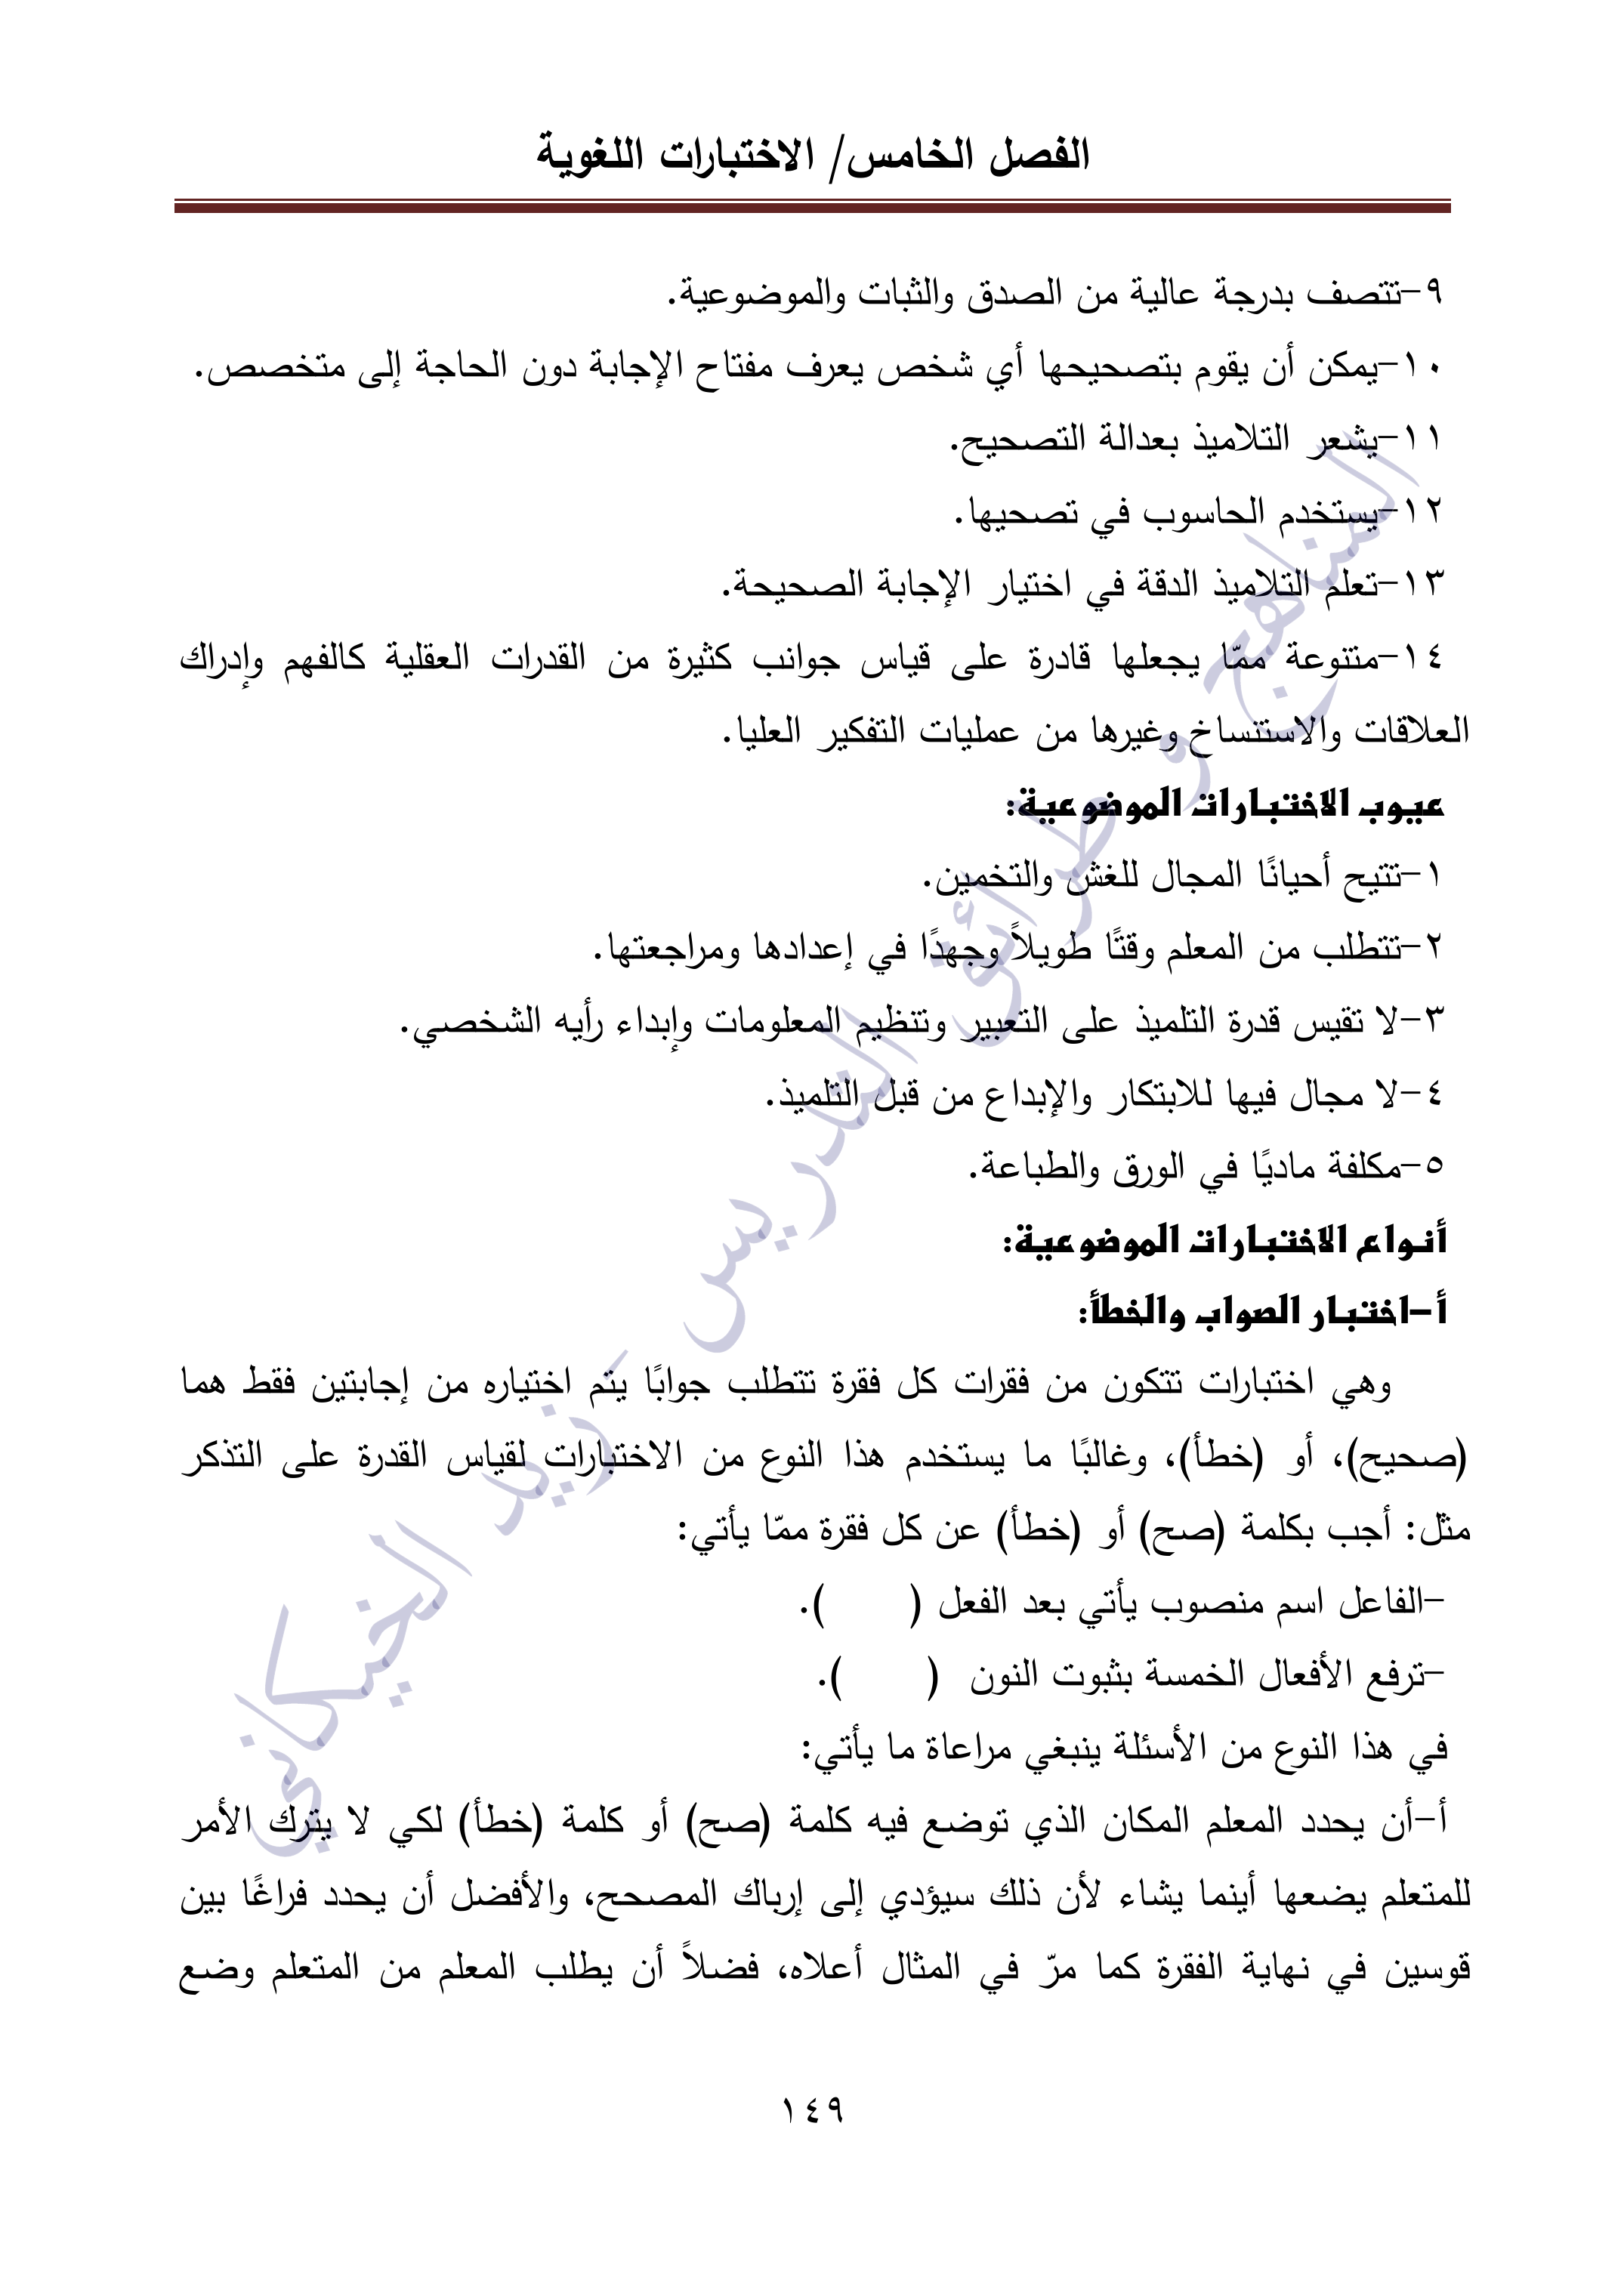 الفصل الخامس/ الاختبارات اللغوية
٩-تتصف بدرجة عالية من الصدق والثبات والموضوعية.
١٠-يمكن أن يقوم بتصحيحها أي شخص يعرف مفتاح الإجابة دون الحاجة إلى متخصص.
١١-يشعر التلاميذ بعدالة التصحيح.
١٢-يستخدم الحاسوب في تصحيها.
١٣-تعلم التلاميذ الدقة في اختيار الإجابة الصحيحة.
١٤-متنوعة ممّا يجعلها قادرة على قياس جوانب كثيرة من القدرات العقلية كالفهم وإدراك
العلاقات والاستنساخ وغيرها من عمليات التفكير العليا.
عيوب الاختبارات الموضوعية:
١-تتيح أحيانًا المجال للغش والتخمين.
٢-تتطلب من المعلم وقتًا طويلاً وجهدًا في إعدادها ومراجعتها.
٣-لا تقيس قدرة التلميذ على التعبير وتنظيم المعلومات وإبداء رأيه الشخصي.
٤-لا مجال فيها للابتكار والإبداع من قبل التلميذ.
٥-مكلفة ماديًا في الورق والطباعة.
أنواع الاختبارات الموضوعية:
أ-اختبار الصواب والخطأ:
وهي اختبارات تتكون من فقرات كل فقرة تتطلب جوابًا يتم اختياره من إجابتين فقط هما
(صحيح)، أو (خطأ)، وغالبًا ما يستخدم هذا النوع من الاختبارات لقياس القدرة على التذكر
مثل: أجب بكلمة (صح) أو (خطأ) عن كل فقرة ممّا يأتي:
-الفاعل اسم منصوب يأتي بعد الفعل (      ).
-ترفع الأفعال الخمسة بثبوت النون (      ).
في هذا النوع من الأسئلة ينبغي مراعاة ما يأتي:
أ-أن يحدد المعلم المكان الذي توضع فيه كلمة (صح) أو كلمة (خطأ) لكي لا يترك الأمر
للمتعلم يضعها أينما يشاء لأن ذلك سيؤدي إلى إرباك المصحح، والأفضل أن يحدد فراغًا بين
قوسين في نهاية الفقرة كما مرّ في المثال أعلاه، فضلاً أن يطلب المعلم من المتعلم وضع
١٤٩
المناهج و طرائق التدريس - زيد الخيكاني